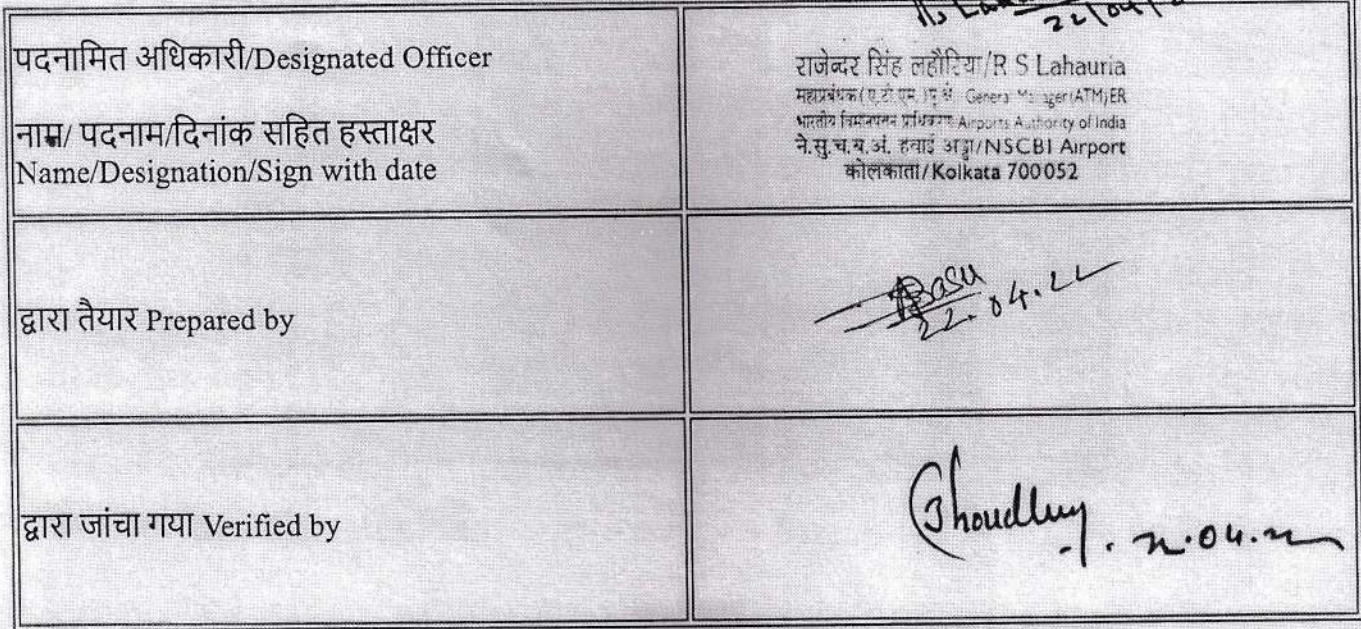 22/04/
पदनामित अधिकारी/Designated Officer
नाम/ पदनाम/दिनांक सहित हस्ताक्षर
Name/Designation/Sign with date
राजेन्दर सिंह लहौरिया/R S Lahauria
महाप्रबंधक(ए.टी.एम.)पू.क्षे. General Manager(ATM)ER
भारतीय विमानपत्तन प्राधिकरण Airports Authority of India
ने.सु.च.ब.अं. हवाई अड्डा/NSCBI Airport
कोलकाता/Kolkata 700052
द्वारा तैयार Prepared by
Basu
22.04.22
द्वारा जांचा गया Verified by
Choudhury
22.04.22